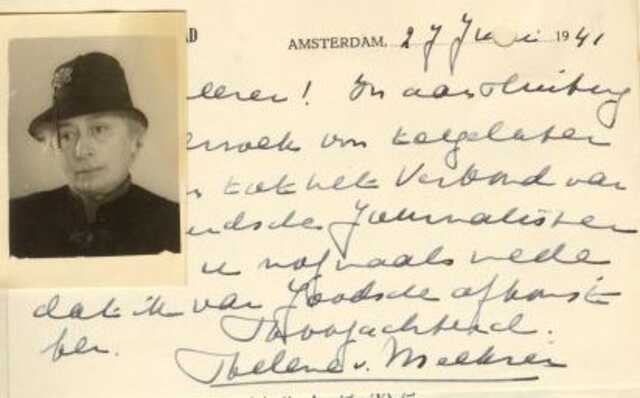 AD
AMSTERDAM, 27 Juni 1941
eeren! In aansluiting
erzoek om toegelaten
n tot het Verbond van
ndsche Journalisten
u nogmaals mede
dat ik van Joodsche afkomst
ben. Hoogachtend.
Helene v. Meekren